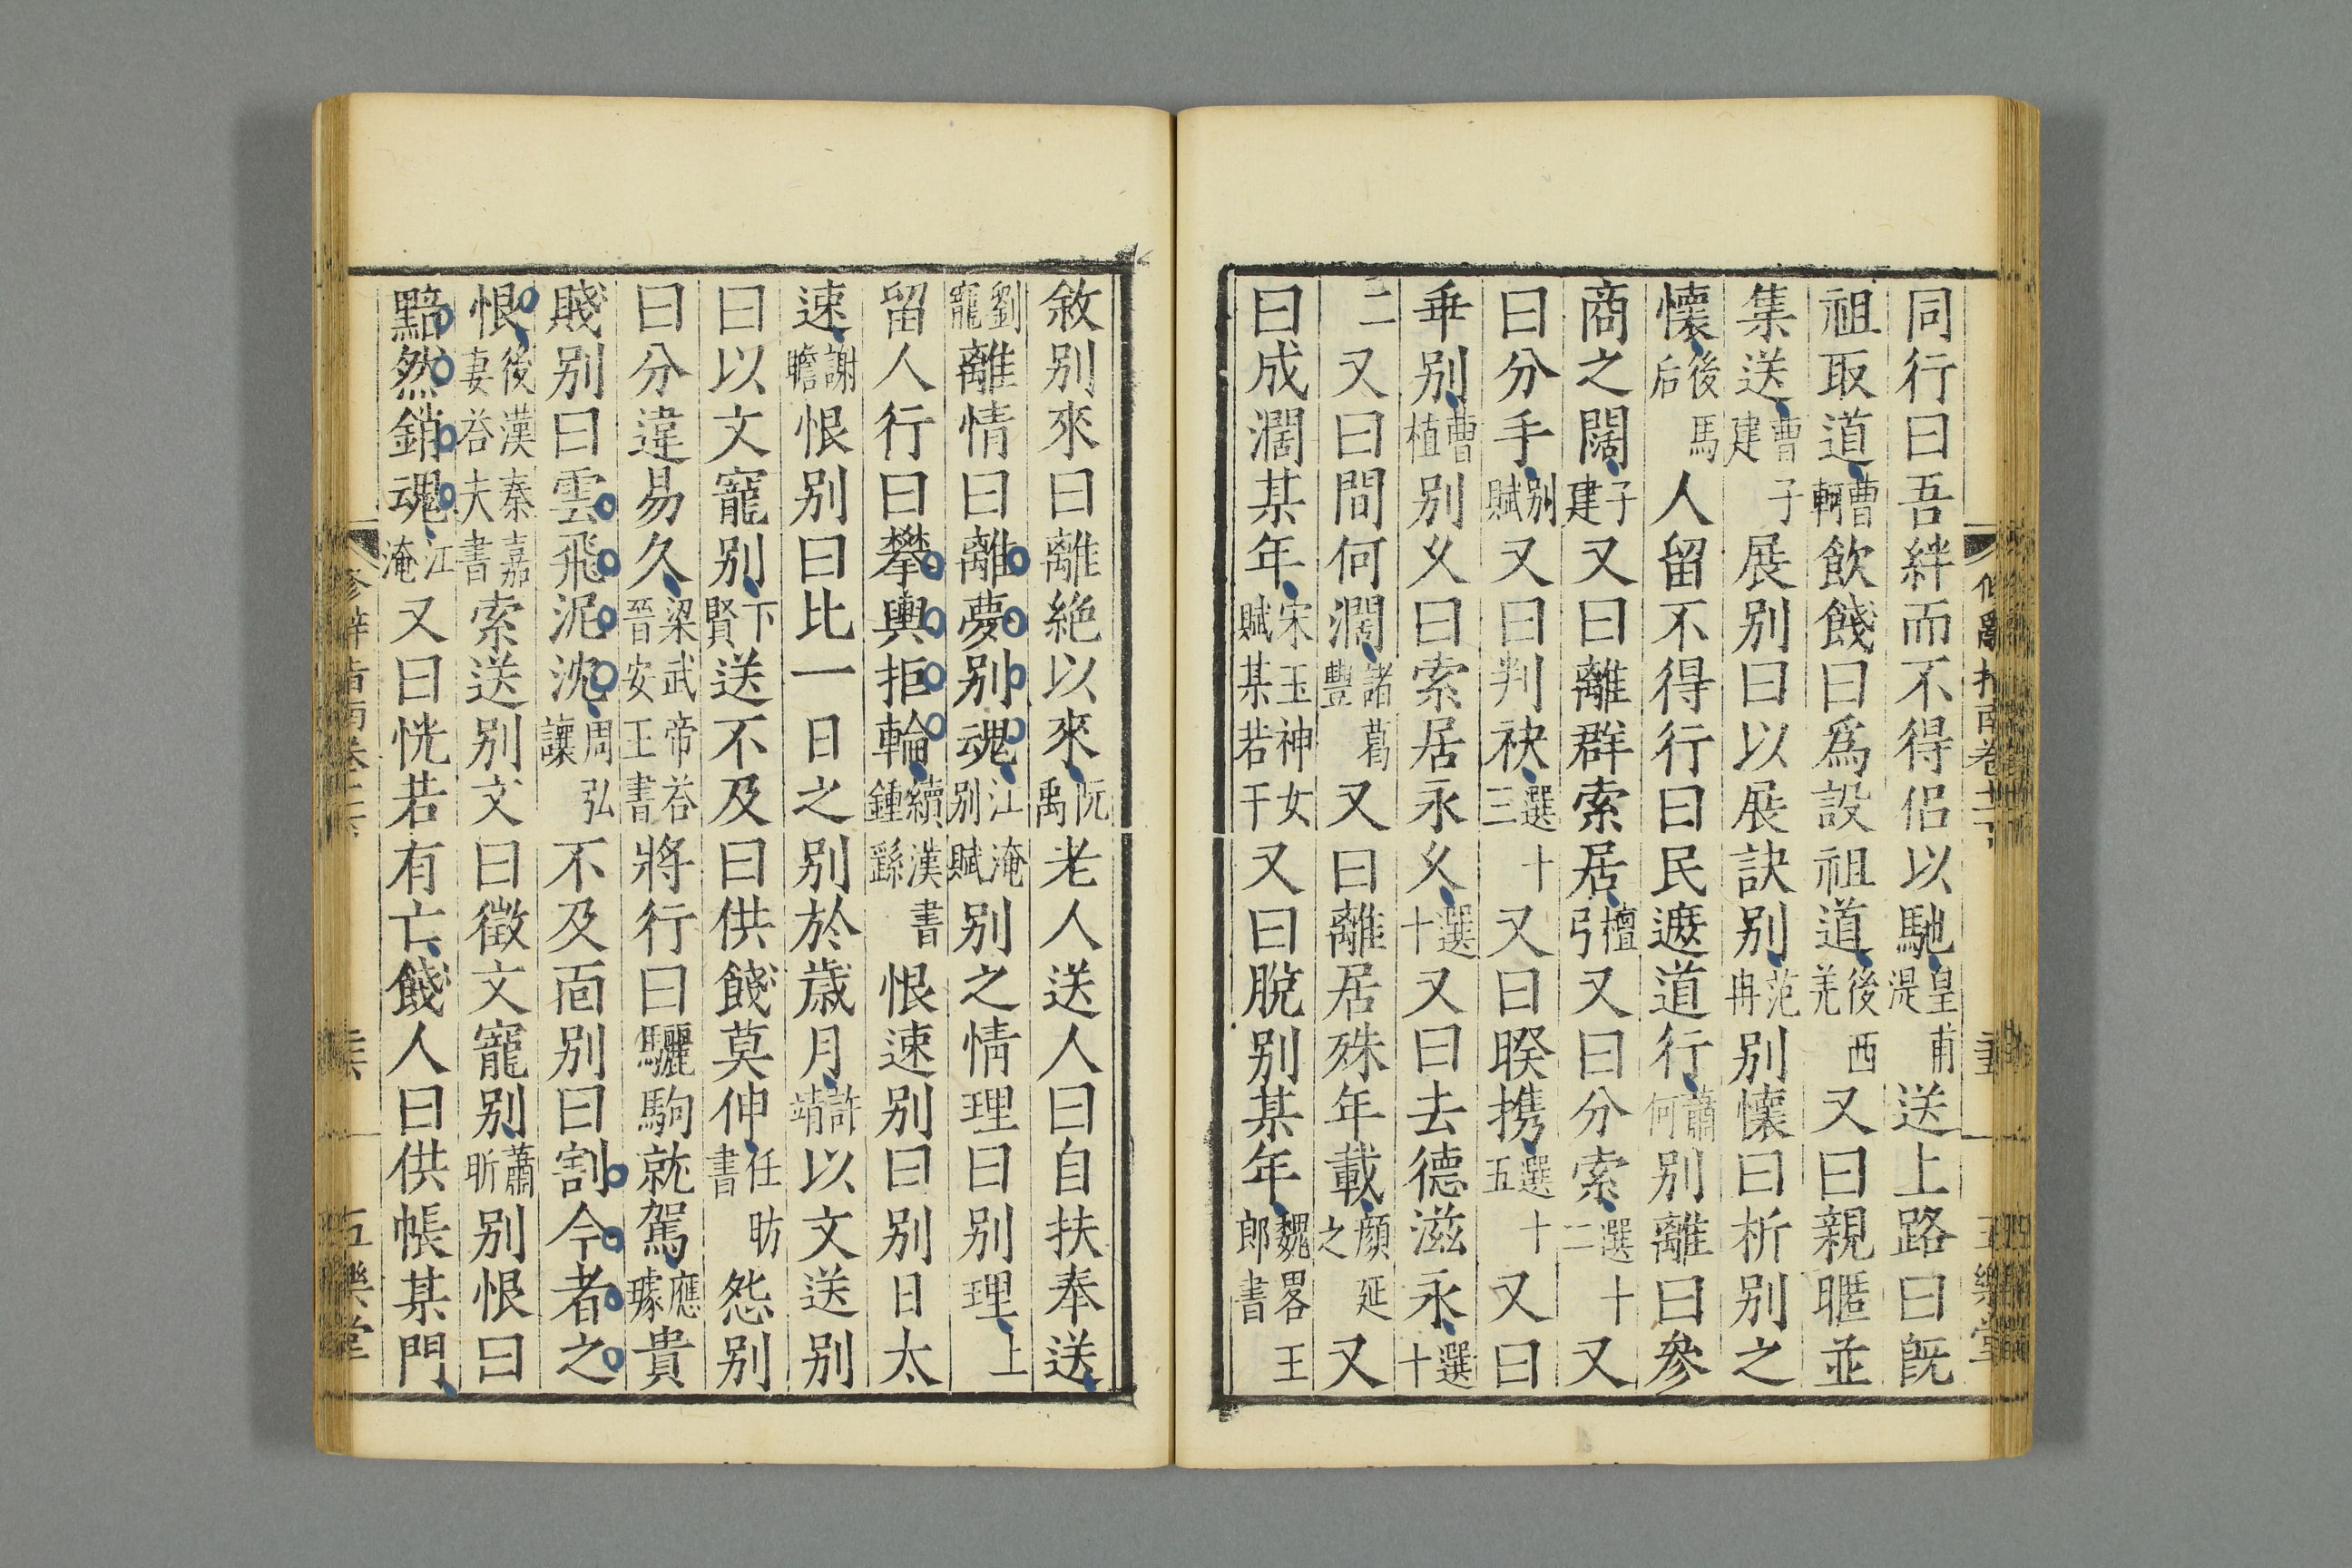 同行曰吾絆而不得侣以馳皇甫湜送上路曰旣
祖取道曹輌飲餞曰爲設祖道後西羌又曰親暱並
集送曹子建展别曰以展訣别范冉别懷曰析别之
懷後馬后人留不得行曰民遮道行蕭何别離曰參
商之闊子建又曰離群索居檀弓又曰分索選十二又
曰分手别賦又曰判袂選十三又曰暌携選十五又曰
乖别曹植别久曰索居永久選十又曰去德滋永選十
二又曰間何濶諸葛豐又曰離居殊年載顔延之又
曰成濶某年宋玉神女賦某若干又曰脫别某年魏畧王郎書
敘别來曰離絶以來阮禹老人送人曰自扶奉送
劉寵離情曰離夢别魂江淹别賦别之情理曰别理上
留人行曰攀輿拒輪續漢書鍾繇恨速别曰别日太
速謝瞻恨别曰比一日之别於歲月許靖以文送别
曰以文寵别下賢送不及曰供餞莫伸任昉書怨别
曰分違易久梁武帝答晉安王書將行曰驪駒就駕應璩貴
賤别曰雲飛泥沈周弘讓不及面别曰割今者之
恨後漢秦嘉妻答夫書索送别文曰徵文寵别蕭昕别恨曰
黯然銷魂江淹又曰恍若有亡餞人曰供帳某門